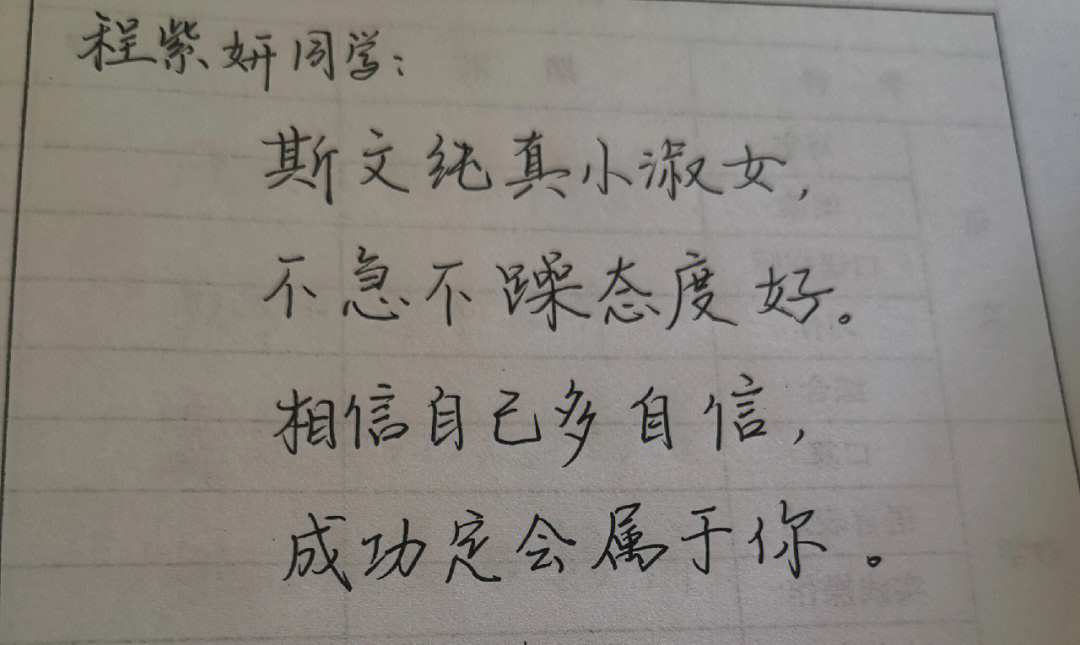 程紫妍同学：
斯文纯真小淑女，
不急不躁态度好。
相信自己多自信，
成功定会属于你。